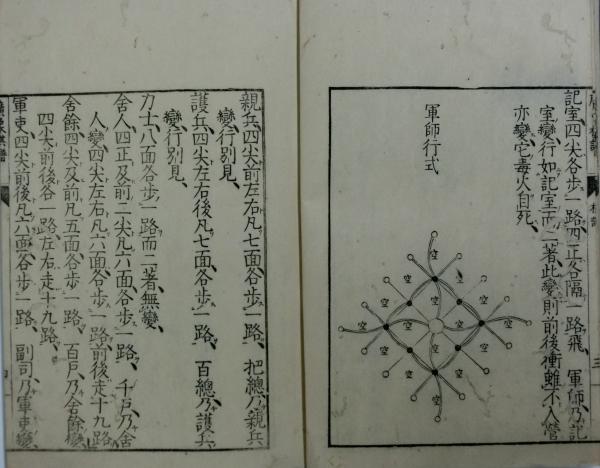 記室、四尖各步一路、四正各隔一路飛、軍師、乃記
室變、行如記室而二著、此變則前後衝雖不入營
亦變、它毒火自死、
軍師行式
空
空
空
空
空
空
空
空
空
空
空
空
親兵、四尖前左右凡七面各步一路、把總、乃親兵
變、行別見、
護兵、四尖左右後凡七面各步一路、百總、乃護兵
變、行別見、
力士、八面各步一路而二著、無變、
舍人、四正及前二尖凡六面各步一路、千戶、乃舍
人變、四尖左右凡六面各步一路、前後走十九路
舍餘、四尖及前凡五面各步一路、百戶、乃舍餘變、
四尖前後各一路、左右走十九路、
軍吏、四尖前後凡六面各步一路、副司、乃軍吏變、